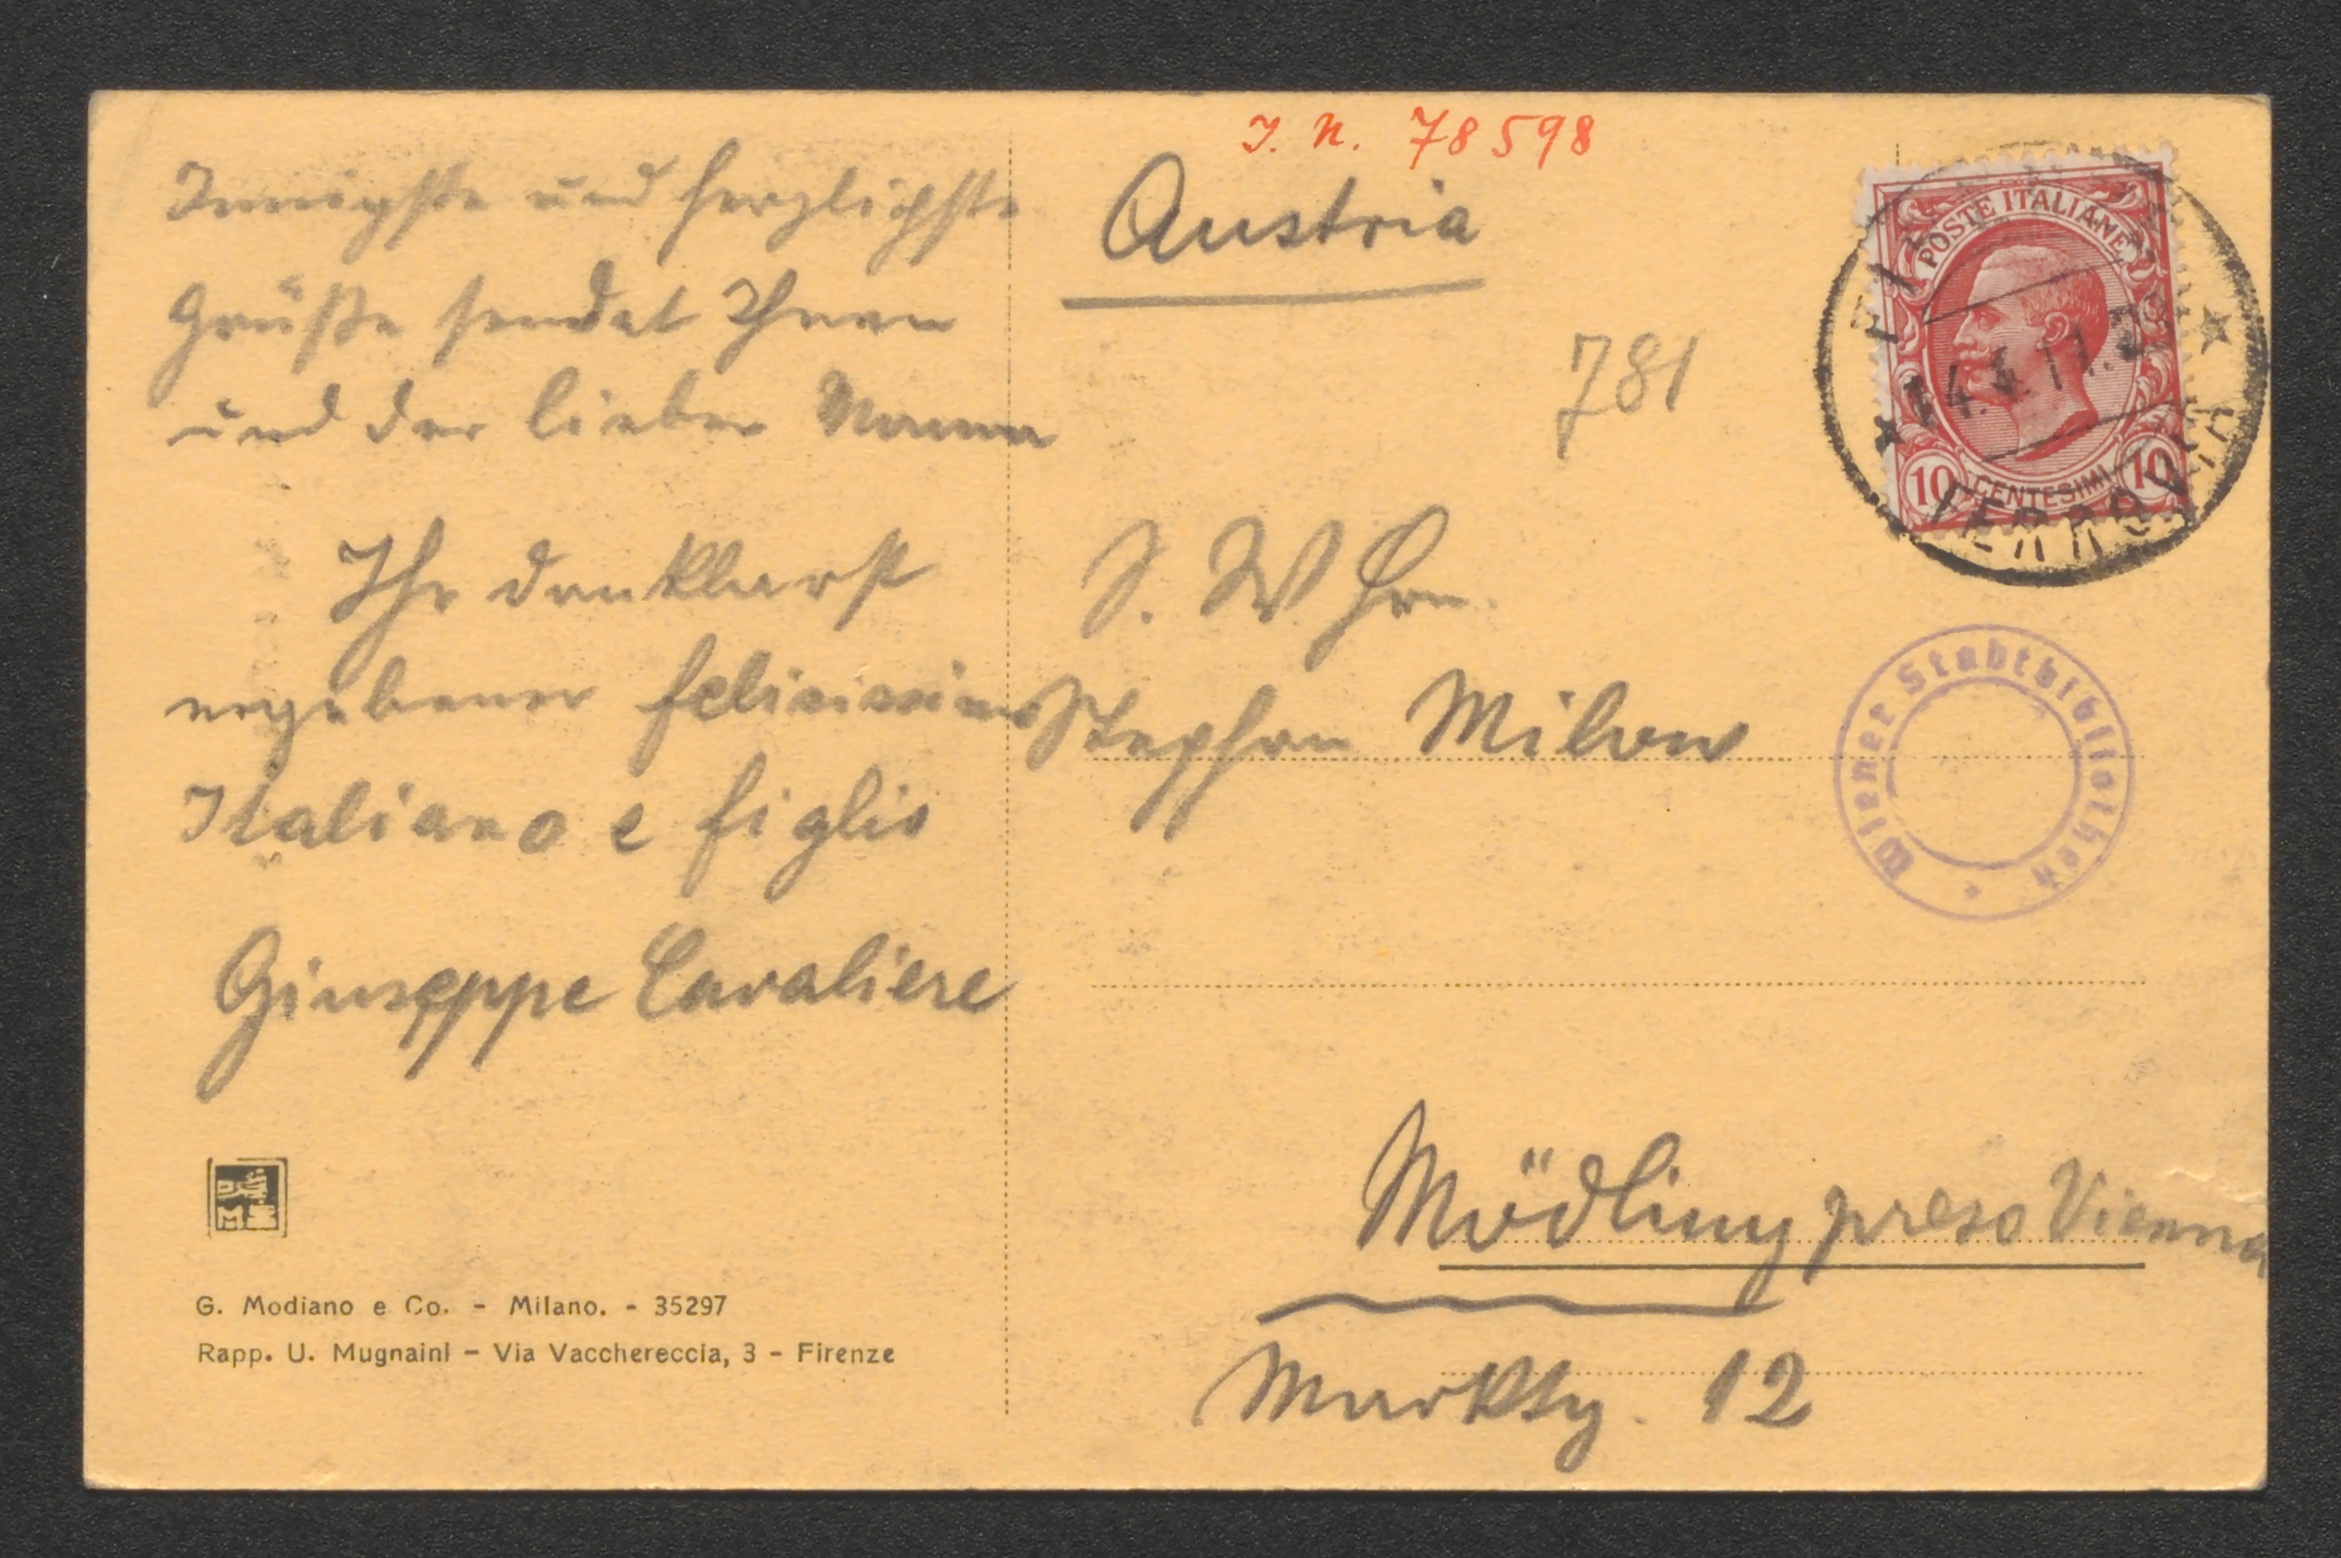 J. N. 78598
Innigste und herzlichste
Grüße sendet Ihnen
und der lieben Mama
Ihr dankbarst
ergebener felicissimo
Italiano e figlio
Giuseppe Cavaliere
G. Modiano e Co. - Milano. - 35297
Rapp. U. Mugnaini - Via Vacchereccia, 3 - Firenze
Austria
781
POSTE ITALIANE
10 CENTESIMI 10
FERROVIA
Wiener Stadtbibliothek
S. W Hrn.
Stephan Milow
Mödling preso Vienna
Marktg. 12